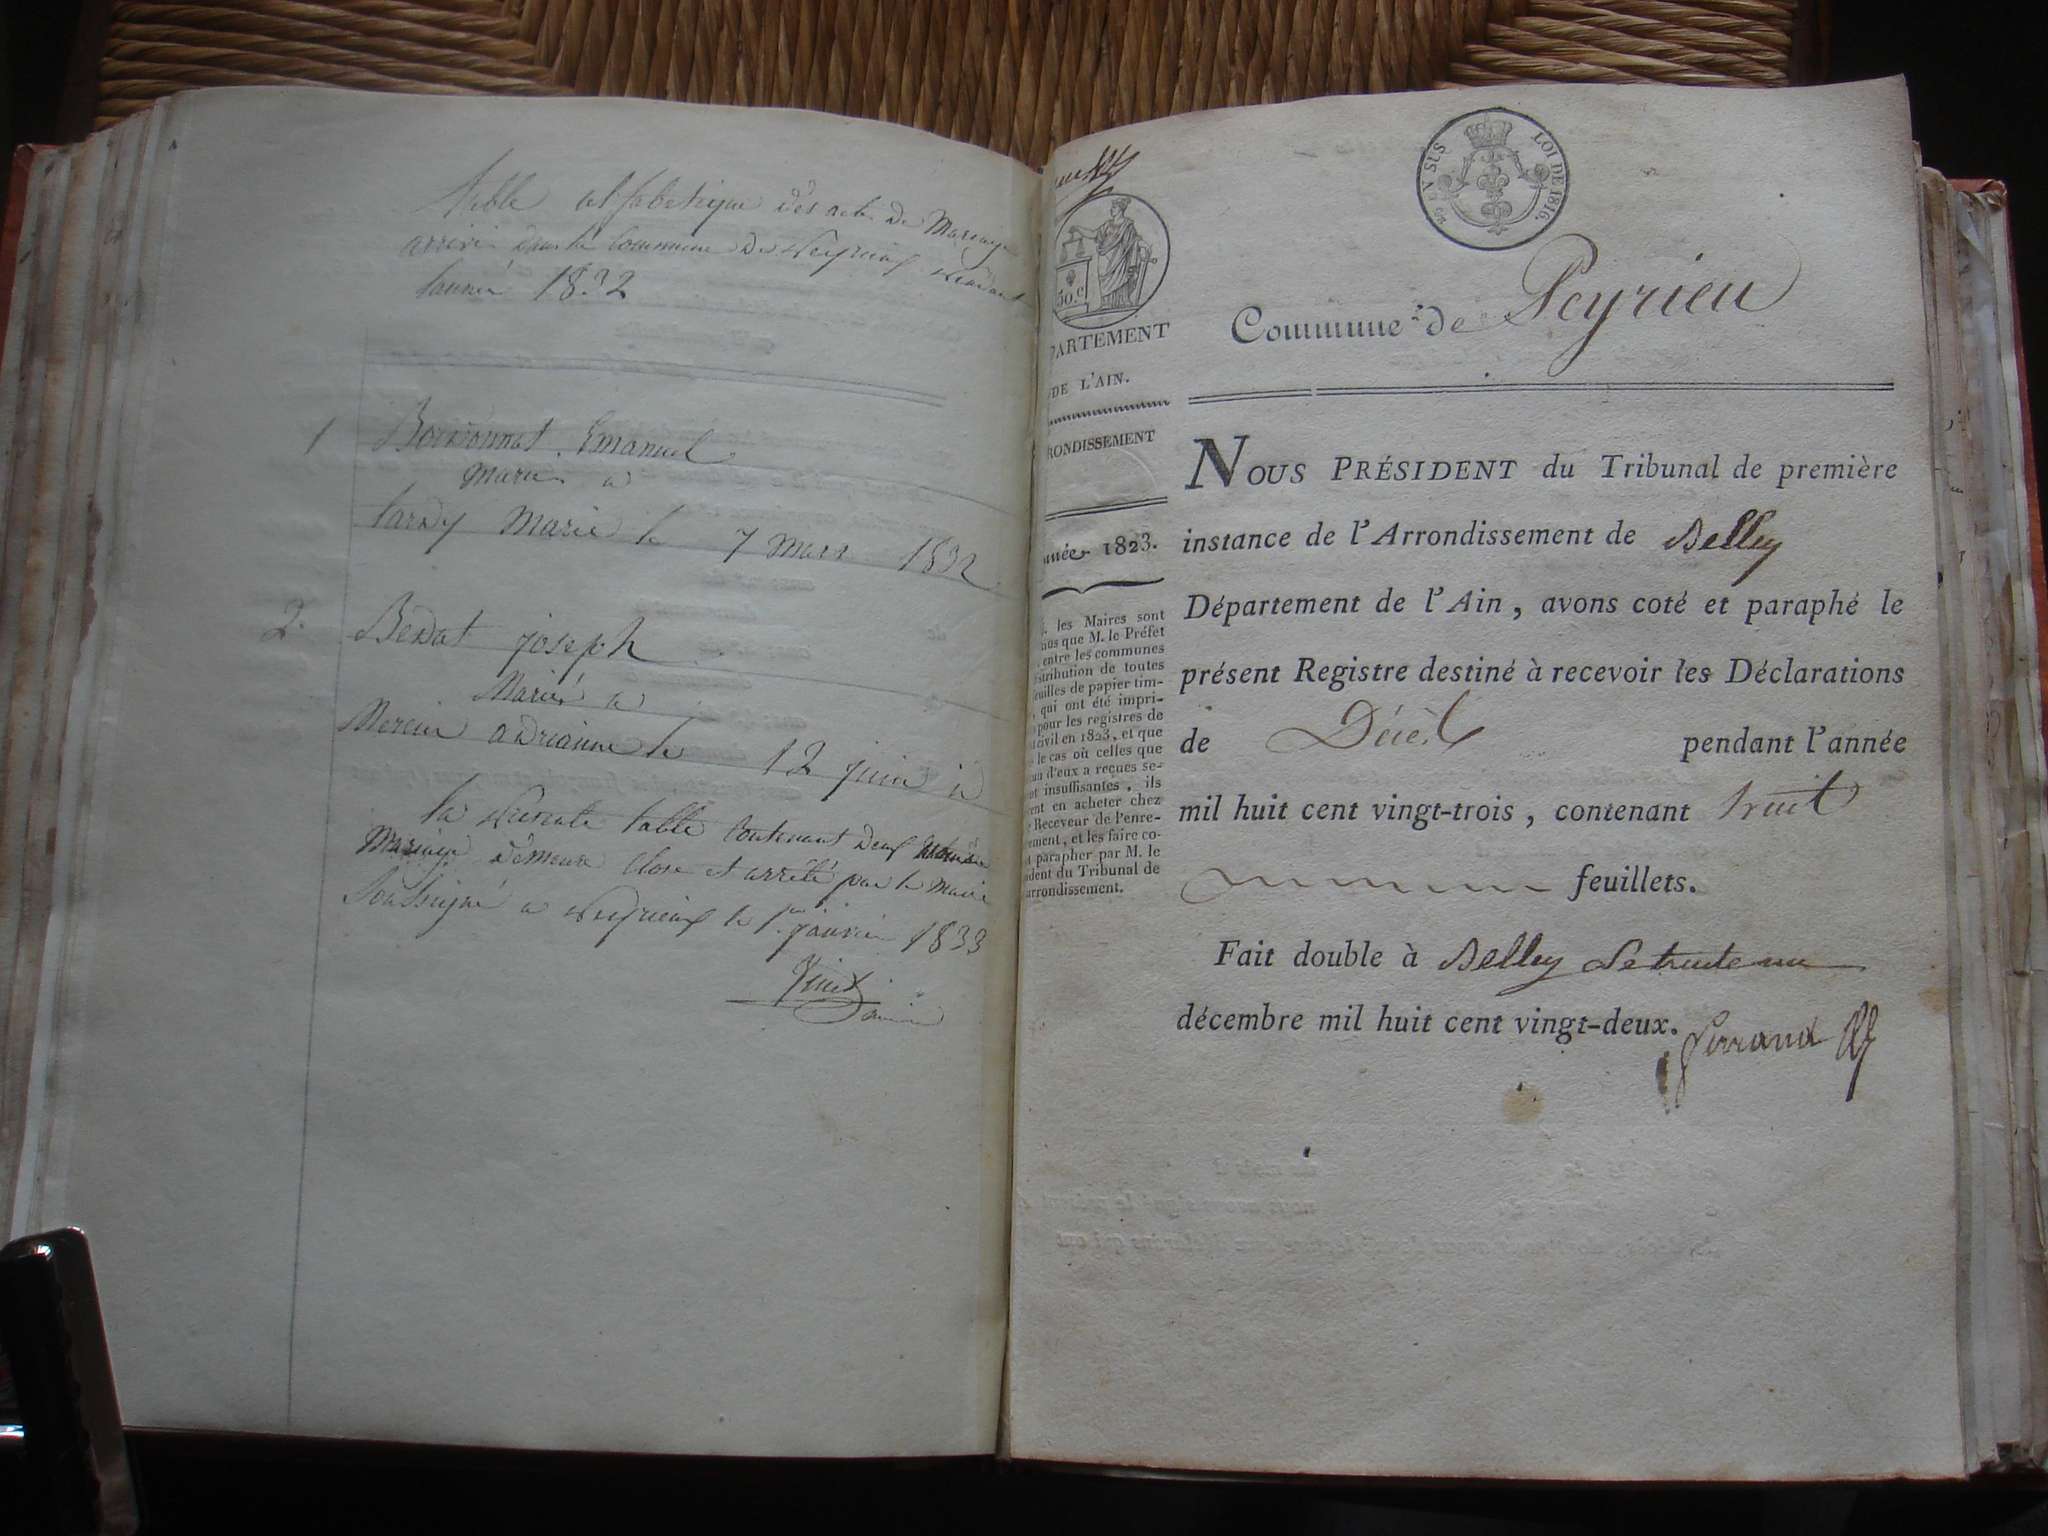 table alfabetique des acte de Mariage
arrivé dans la Commune de Peyrieux pendant
lannée 1832
1 Boissonnat Emanuel
Marié a
tardy Marie le 7 Mars 1832
2. Bendat joseph
Marié a
Mercier adrianne le 12 juin id
la présente table Contenant deux
Mariage demeure Close et arrêté par le maire
Soussigné a Peyrieux le 1er janvier 1833
LOI DE 1816.
EN SUS
50.c
PARTEMENT
DE L'AIN.
RONDISSEMENT
nnée 1823.
. les Maires sont
nus que M. le Préfet
entre les communes
istribution de toutes
euilles de papier tim-
, qui ont été impri-
pour les registres de
civil en 1823, et que
le cas où celles que
un d'eux a reçues se-
nt insuffisantes, ils
ront en acheter chez
Receveur de l'enre-
rement, et les faire co-
t parapher par M. le
sident du Tribunal de
arrondissement.
Commune de Peyrieu
NOUS PRÉSIDENT du Tribunal de première
instance de l'Arrondissement de Belley
Département de l'Ain, avons coté et paraphé le
présent Registre destiné à recevoir les Déclarations
de Décès pendant l'année
mil huit cent vingt-trois, contenant huit
feuillets.
Fait double à Belley le trente un
décembre mil huit cent vingt-deux.